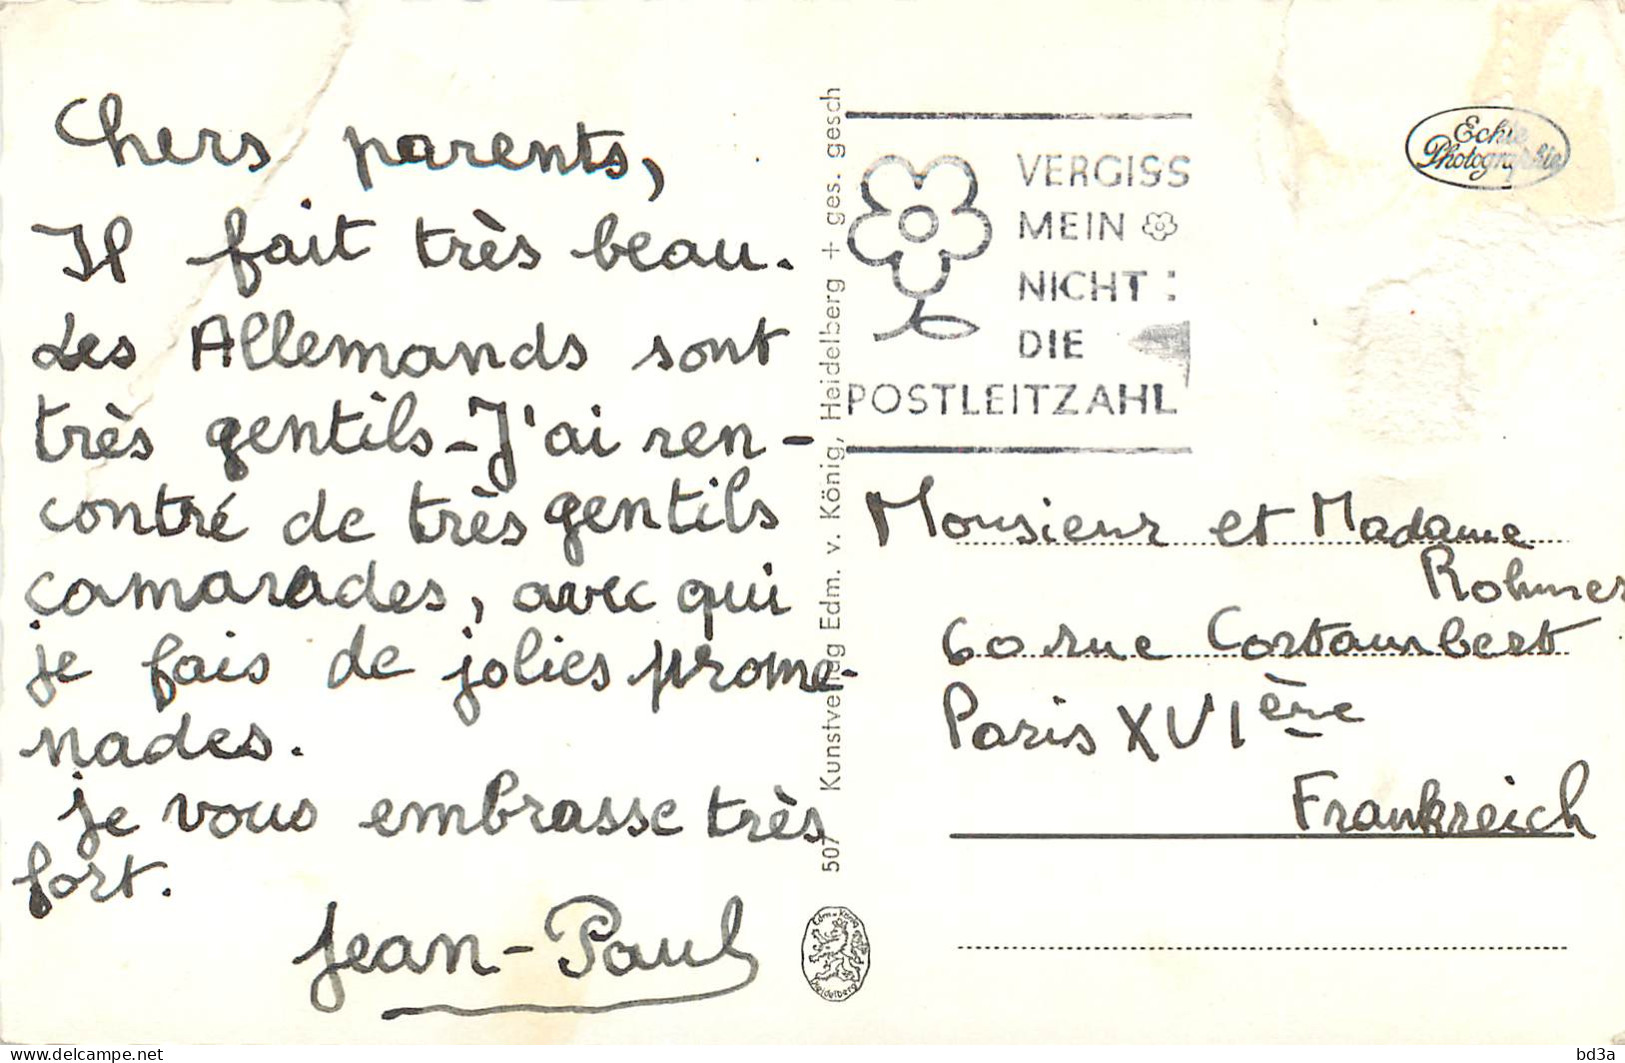 Chers parents,
Il fait très beau.
Les Allemands sont
très gentils - J'ai ren-
contré de très gentils
camarades, avec qui
je fais de jolies prome-
nades.
Je vous embrasse très
fort.
Jean-Paul
507 Kunstverlag Edm. v. König, Heidelberg + ges. gesch
Edm. v. König
Heidelberg
VERGISS
MEIN
NICHT :
DIE
POSTLEITZAHL
Echte
Photographie
Monsieur et Madame
Rohmer
60 rue Cortambert
Paris XVIère
Frankreich
delcampe.net
bd3a